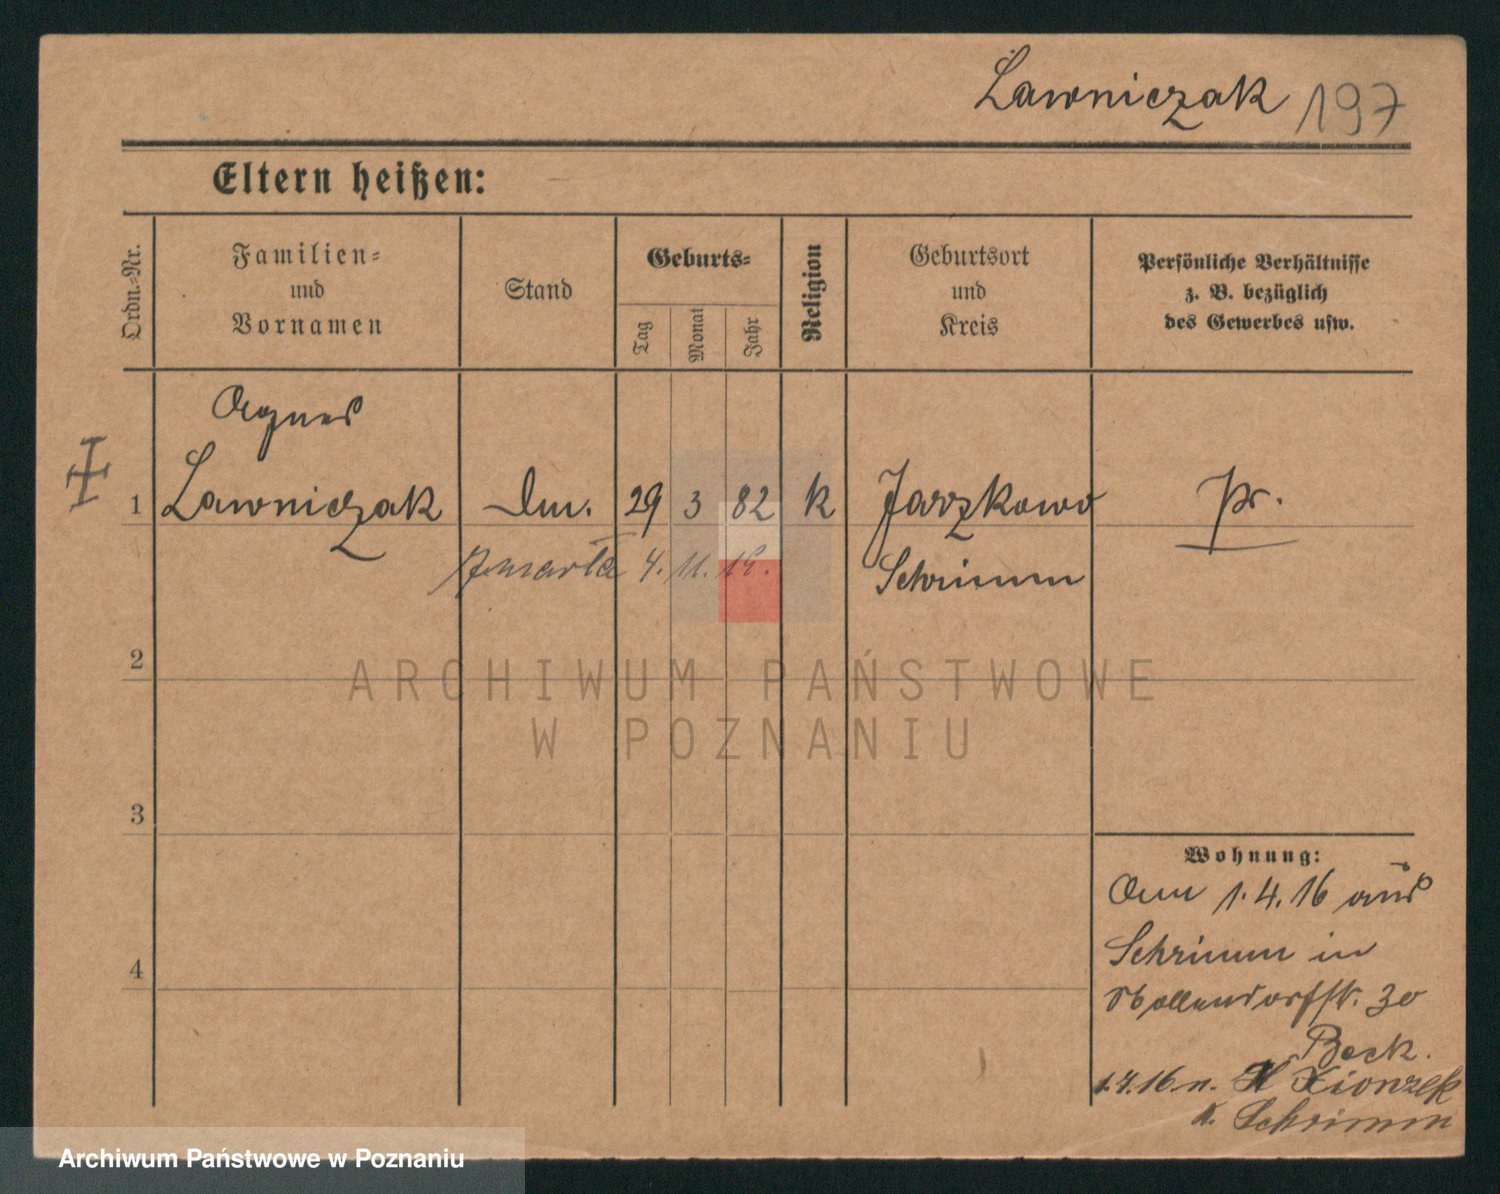 Lawniczak 197
Eltern heißen:
Ordn.-Nr.
Familien-
und
Vornamen
Stand
Geburts-
Tag
Monat
Jahr
Religion
Geburtsort
und
Kreis
Persönliche Verhältnisse
z. B. bezüglich
des Gewerbes usw.
Agnes
1 Lawniczak 29 3 82 k Jarzkowo Pr.
zmarła 4. 11. Schrimm
2
3
4
Wohnung:
Am 1.4.16 aus
Schrimm in
30
Beck.
1.4.16 n. Xionzek
K. Schrimm
ARCHIWUM PAŃSTWOWE
W POZNANIU
Archiwum Państwowe w Poznaniu